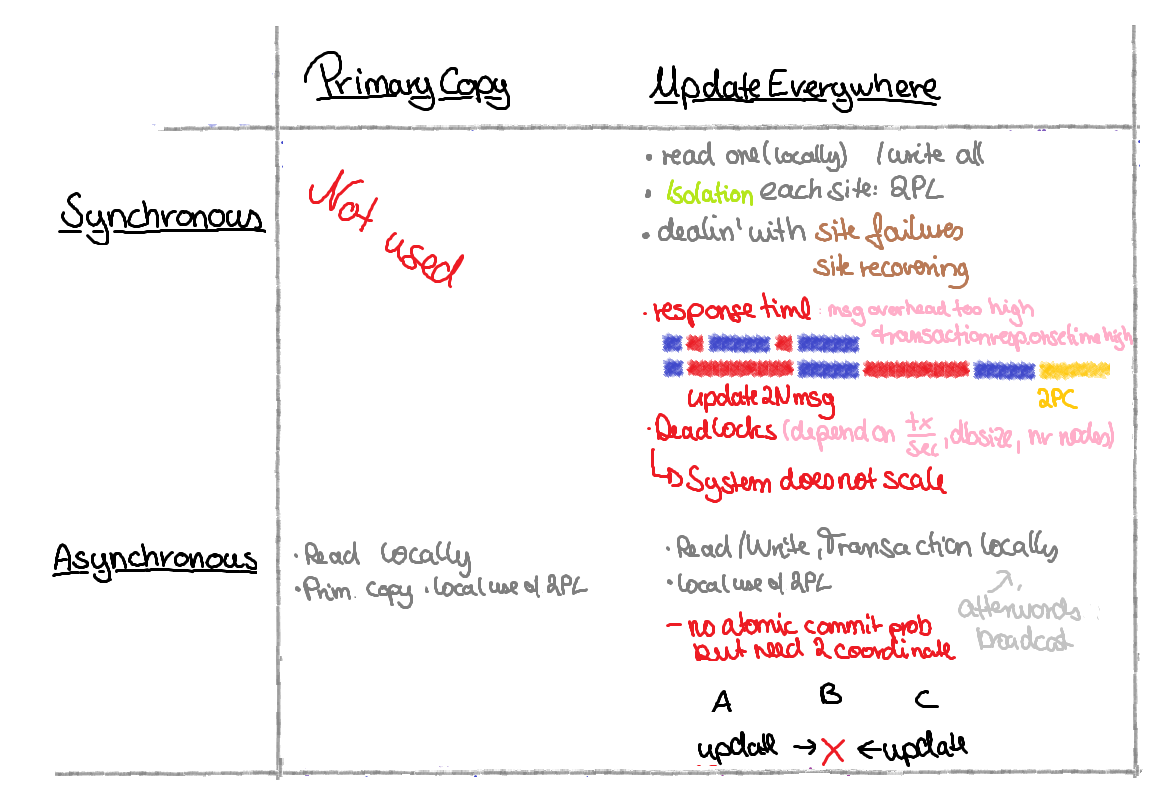 Primary Copy
Update Everywhere
Synchronous
Not used
• read one (locally) / write all
• Isolation each site: 2PL
• dealin' with site failures
site recovering
• response time : msg overhead too high
transaction response time high
update 2N msg
2PC
• Deadlocks (depend on tx/sec, dbsize, nr nodes)
↳ System does not scale
Asynchronous
• Read locally
• Prim. copy • local use of 2PL
• Read / Write, Transaction locally
• local use of 2PL
afterwords
broadcast
- no atomic commit prob
but need 2 coordinate
A B C
update → X ← update